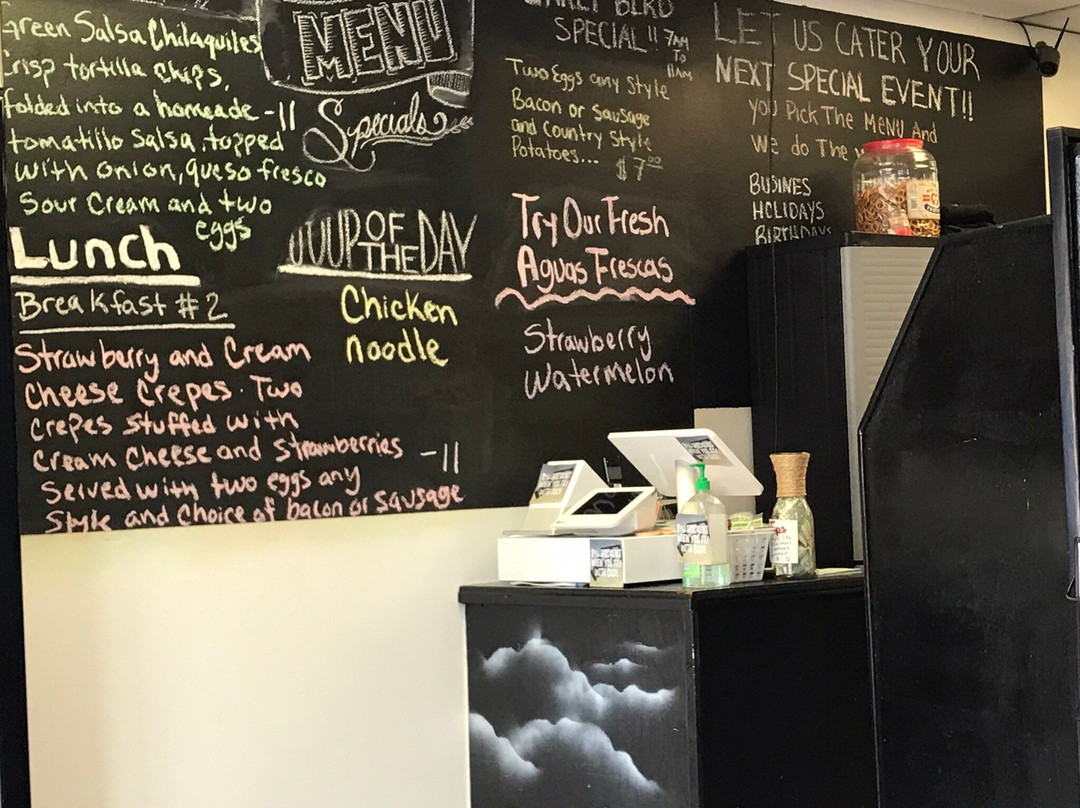 Green Salsa Chilaquiles
Crisp tortilla chips,
folded into a homeade -11
tomatillo salsa, topped
with onion, queso fresco
Sour Cream and two
eggs
Lunch
Breakfast #2
Strawberry and Cream
Cheese Crepes. Two
crepes stuffed with
Cream Cheese and Strawberries -11
Served with two eggs any
Style and Choice of bacon or sausage
MENU
Specials
SOUP OF THE DAY
Chicken
noodle
EARLY BIRD
SPECIAL!! 7AM
TO
11AM
Two Eggs any Style
Bacon or Sausage
and Country Style
Potatoes... $7.00
Try Our Fresh
Aguas Frescas
Strawberry
Watermelon
LET US CATER YOUR
NEXT SPECIAL EVENT!!
you Pick The MENU And
We do The
BUSINES
HOLIDAYS
BIRTHDAYS